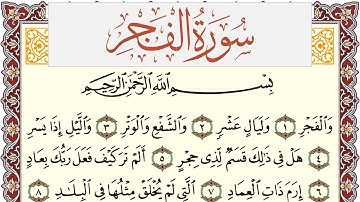 سُورَةُ الفَجْرِ
بِسْمِ اللَّهِ الرَّحْمَٰنِ الرَّحِيمِ
وَالْفَجْرِ ١ وَلَيَالٍ عَشْرٍ ٢ وَالشَّفْعِ وَالْوَتْرِ ٣ وَاللَّيْلِ إِذَا يَسْرِ
٤ هَلْ فِي ذَٰلِكَ قَسَمٌ لِّذِي حِجْرٍ ٥ أَلَمْ تَرَ كَيْفَ فَعَلَ رَبُّكَ بِعَادٍ
٦ إِرَمَ ذَاتِ الْعِمَادِ ٧ الَّتِي لَمْ يُخْلَقْ مِثْلُهَا فِي الْبِلَادِ